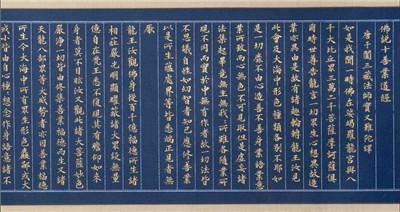 佛說十善業道經
唐于闐三藏法師實叉難陀譯
如是我聞一時佛在娑竭羅龍宮與八
千大比丘眾三萬二千菩薩摩訶薩俱
爾時世尊告龍王言一切眾生心想異故造
業亦異由是故有諸趣輪轉龍王汝見
此會及大海中形色種類各別不耶如
是一切靡不由心造善不善身業語業意
業所致而心無色不可見取但是虛妄諸
法集起畢竟無主無我我所雖各隨業所
現不同而實於中無有作者故一切法皆
不思議自性如幻智者知已應修善業
以是所生蘊處界等皆悉端正見者無
厭
龍王汝觀佛身從百千億福德所生諸
相莊嚴光明顯曜蔽諸大眾設無量
億自在梵王悉不復現其有瞻仰如來
身者莫不目眩汝又觀此諸大菩薩妙色
嚴淨一切皆由修集善業福德而生又諸
天龍八部眾等大威勢者亦因善業福德
所生今大海中所有眾生形色麤鄙或大
或小皆由自心種種想念作身語意諸不